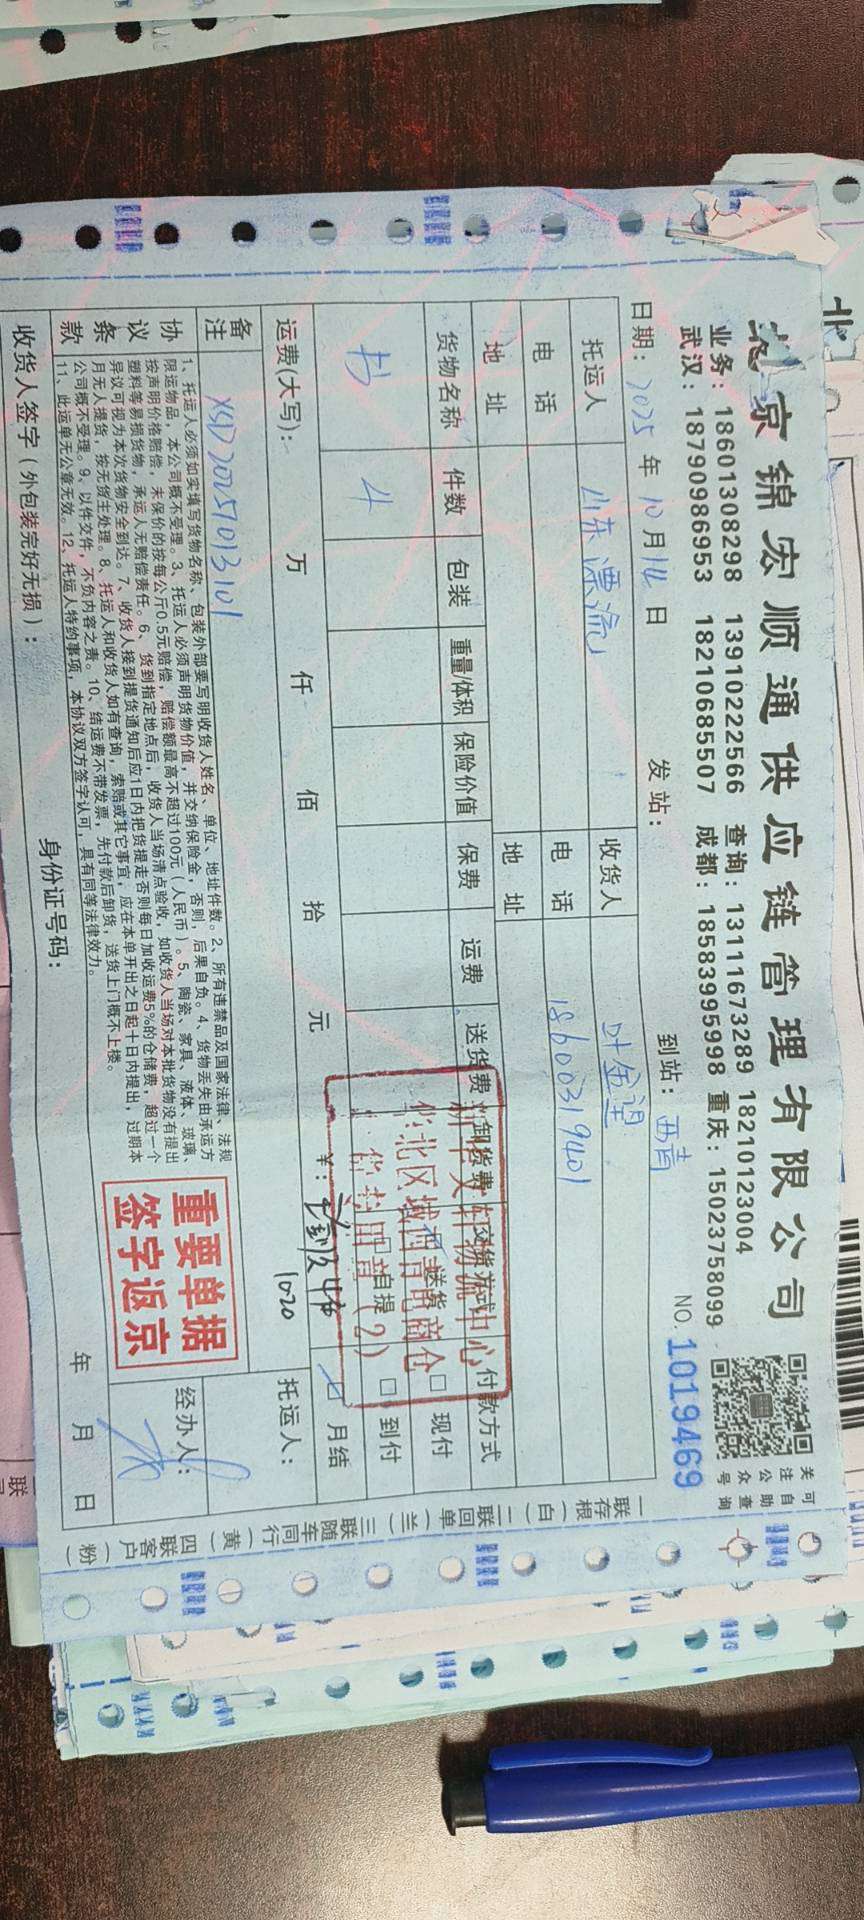 北京锦宏顺通供应链管理有限公司
业务：18601308298 13910222566 查询：13111673289 18210123004
武汉：18790986953 18210685507 成都：18583995998 重庆：15023758099
关注公众号
可自助查询
日期：2025年10月14日 发站： 到站：西青 NO.1019469
托运人 山东漂流 收货人
电话 电话 18600319401
地址 地址
货物名称 件数 包装 重量/体积 保险价值 保费 运费 送货费 卸货费 交货方式 付款方式
书 4 送货 □现付
自提 □到付
月结
华北区域西青电商仓
(2)
运费(大写)： 万 仟 佰 拾 元 ¥：
1020
托运人：
备注 XSD20251013101
协议条款
1、托运人必须如实填写货物名称、包装外部要写明收货人姓名、单位、地址件数。2、所有违禁品及国家法律、法规
限运物品，本公司概不受理。3、托运人必须声明货物价值，并交纳保险金，否则，后果自负。4、货物丢失由承运方
按声明价格赔偿，未保价的按每公斤0.5元赔偿，赔偿额最高不超过100元（人民币）。5、陶瓷、家具、液体、玻璃、
塑料等易损货物，承运人无赔偿责任。6、货到指定地点后，收货人当场清点验收，如收货人当场对本批货物没有提出
异议可视为本次货物安全到达。7、收货人接到提货通知后应1日内把货提走否则每日加收运费5%的仓储费，超过一个
月无人提货，按无货主处理。8、托运人和收货人如有查询，索赔或其它事宜，应在本单开出之日起十日内提出，过期本
公司概不受理。9、以件交件，不负内容之责。10、结运费不带发票，先付款后卸货，送货上门概不上楼。
11、此运单无公章无效。12、托运人特约事项，本协议双方签字认可，具有同等法律效力。
重要单据
签字返京
经办人：
收货人签字（外包装完好无损）： 身份证号码： 年 月 日
一联存根（白） 二联回单（兰） 三联随车同行（黄） 四联客户（粉）